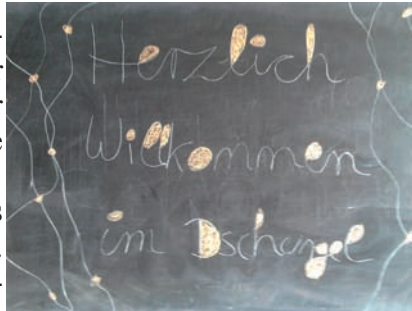 Herzlich
Willkommen
im Dschungel